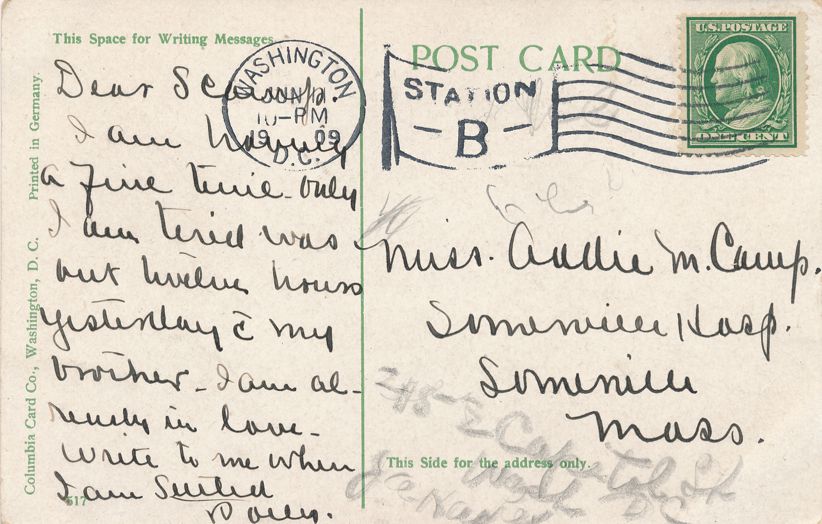 This Space for Writing Messages
Dear S Camp.
I am having
a fine time - only
I am tired was
out twelve hours
yesterday c̄ my
brother - I am al-
ready in love -
Write to me when
I am Suited
Columbia Card Co., Washington, D. C. Printed in Germany.
517
WASHINGTON
JUN
10-PM
19 09
D.C.
POST CARD
STATION
B
U.S. POSTAGE
ONE CENT
Miss. Addie M. Camp.
Somerville Hosp.
Somerville
Mass.
This Side for the address only.
248 - E Capitol St
Wash D C